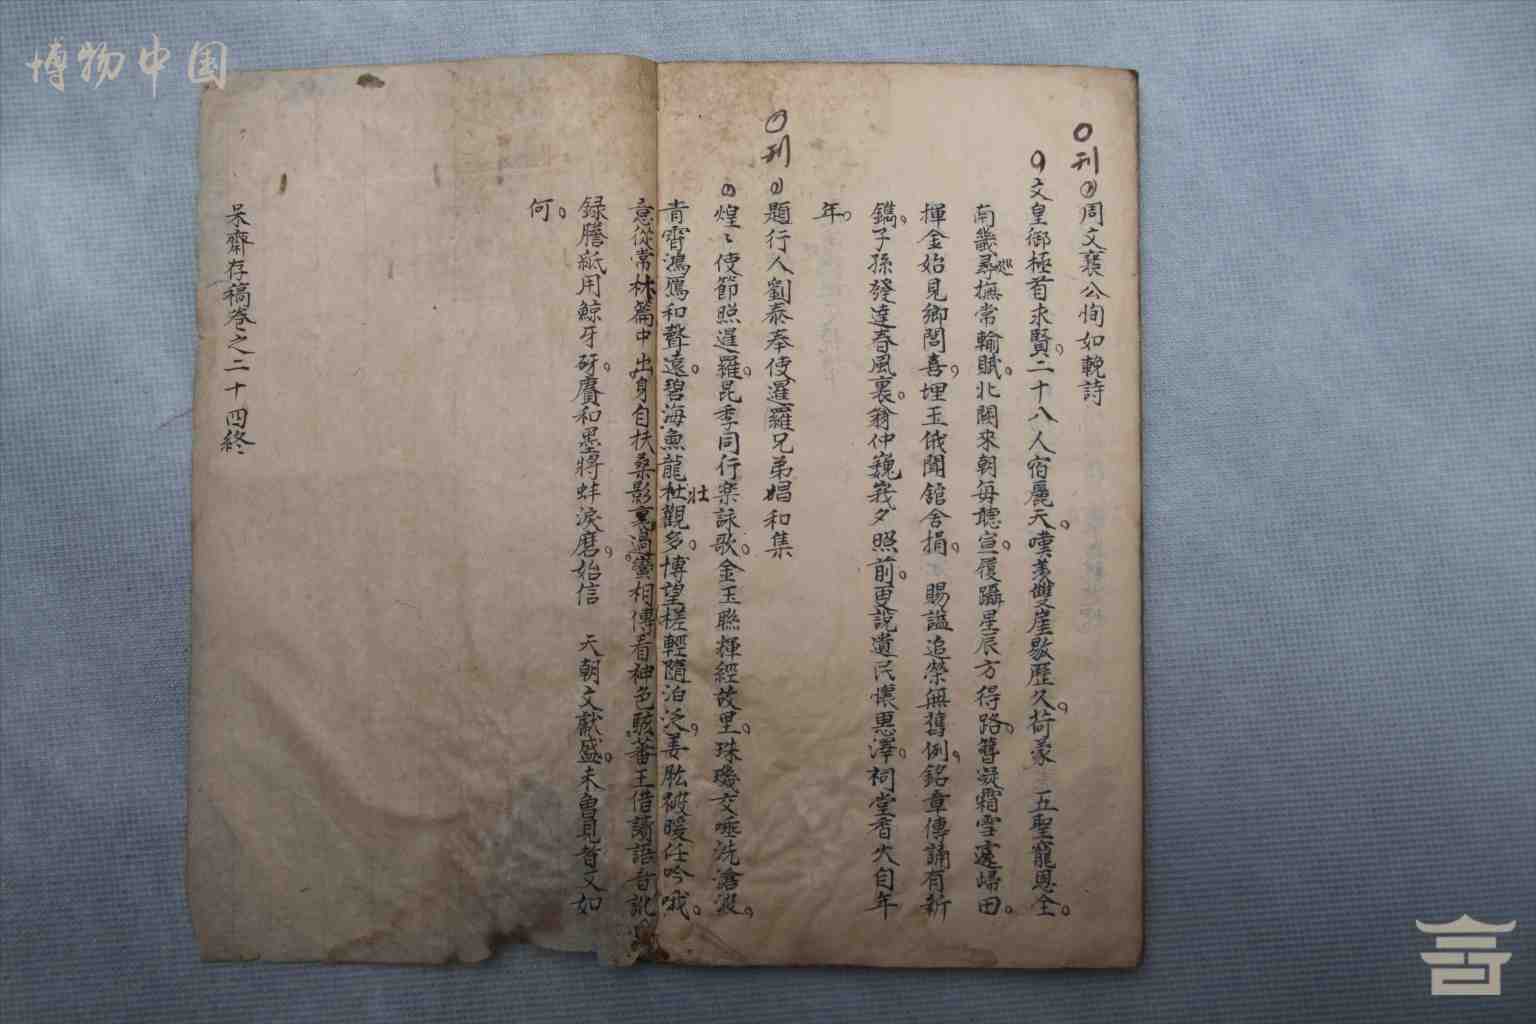 博物中国
刊 周文襄公恂如輓詩
文皇御極首求賢二十八人宿麗天嘆羨雙崖敭歷久荷蒙 五聖寵恩全
南畿尋撫常輸賦北闕來朝每聽宣履躡星辰方得路簪凝霜雪遽歸田
巡
揮金始見鄉閭喜埋玉俄聞舘舍捐 賜謚追榮無舊例銘章傳誦有新
鐫子孫發達春風裏翁仲巍峩夕照前更說遺民懷思澤祠堂香火自年
年
刊 題行人劉泰奉使暹羅兄弟唱和集
煌〻使節照暹羅昆季同行樂詠歌金玉聯輝經故里珠璣交唾洗滄波
青霄鴻鴈和聲遠碧海魚龍杜觀多博望槎輕隨泊泛姜肱被暖任吟哦
壯
意從常棣篇中出身自扶桑影裏過蠻相傳看神色駭蕃王借讀語音訛
録謄紙用鯨牙砑賡和墨將蚌淚磨始信 天朝文獻盛未曾見者又如
何
呆齋存稿卷之二十四終